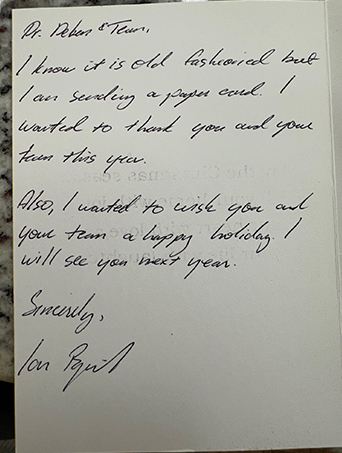 Dr. Debas & Team,
I know it is old fashioned but
I am sending a paper card. I
wanted to thank you and your
team this year.
Also, I wanted to wish you and
your team a happy holiday. I
will see you next year.
Sincerely,
Ian